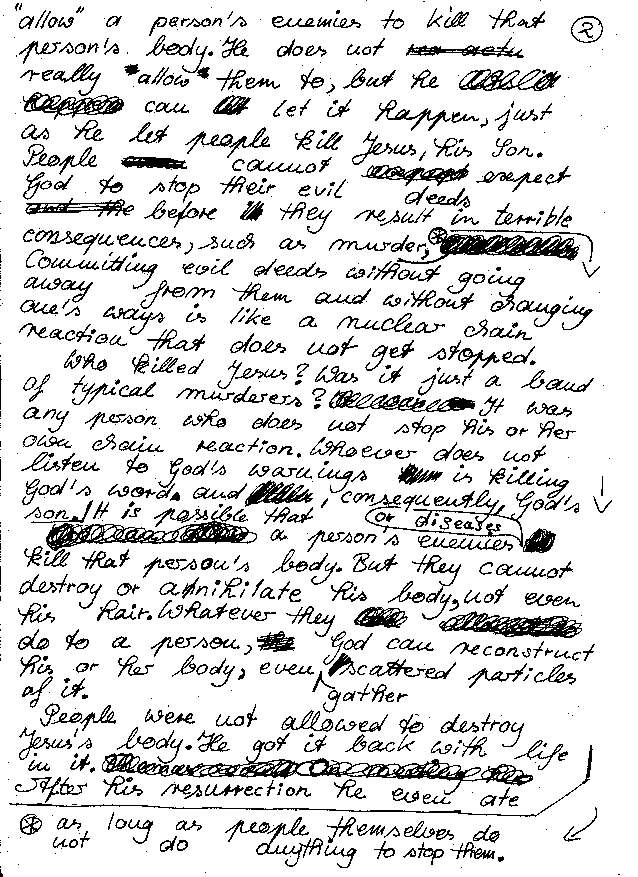 "allow" a person's enemies to kill that
②
person's body. He does not
really "allow" them to, but he
can let it happen, just
as he let people kill Jesus, his Son.
People cannot expect
God to stop their evil deeds
before they result in terrible
consequences, such as murder, ⊛
Committing evil deeds without going
away from them and without changing
one's ways is like a nuclear chain
reaction that does not get stopped.
Who killed Jesus? Was it just a band
of typical murderers? It was
any person who does not stop his or her
own chain reaction. Whoever does not
listen to God's warnings is killing
God's word and, consequently, God's
son. It is possible that or diseases
a person's enemies
kill that person's body. But they cannot
destroy or annihilate his body, not even
his hair. Whatever they
do to a person, God can reconstruct
his or her body, even scattered particles
of it. gather
People were not allowed to destroy
Jesus's body. He got it back with life
in it.
After his resurrection he even ate
⊛ as long as people themselves do
not do anything to stop them.